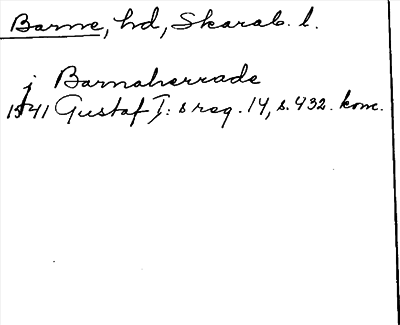 Barne, hd, Skarab. l.
j Barnaherrade
1541 Gustaf I: s reg. 14, s. 432. konc.